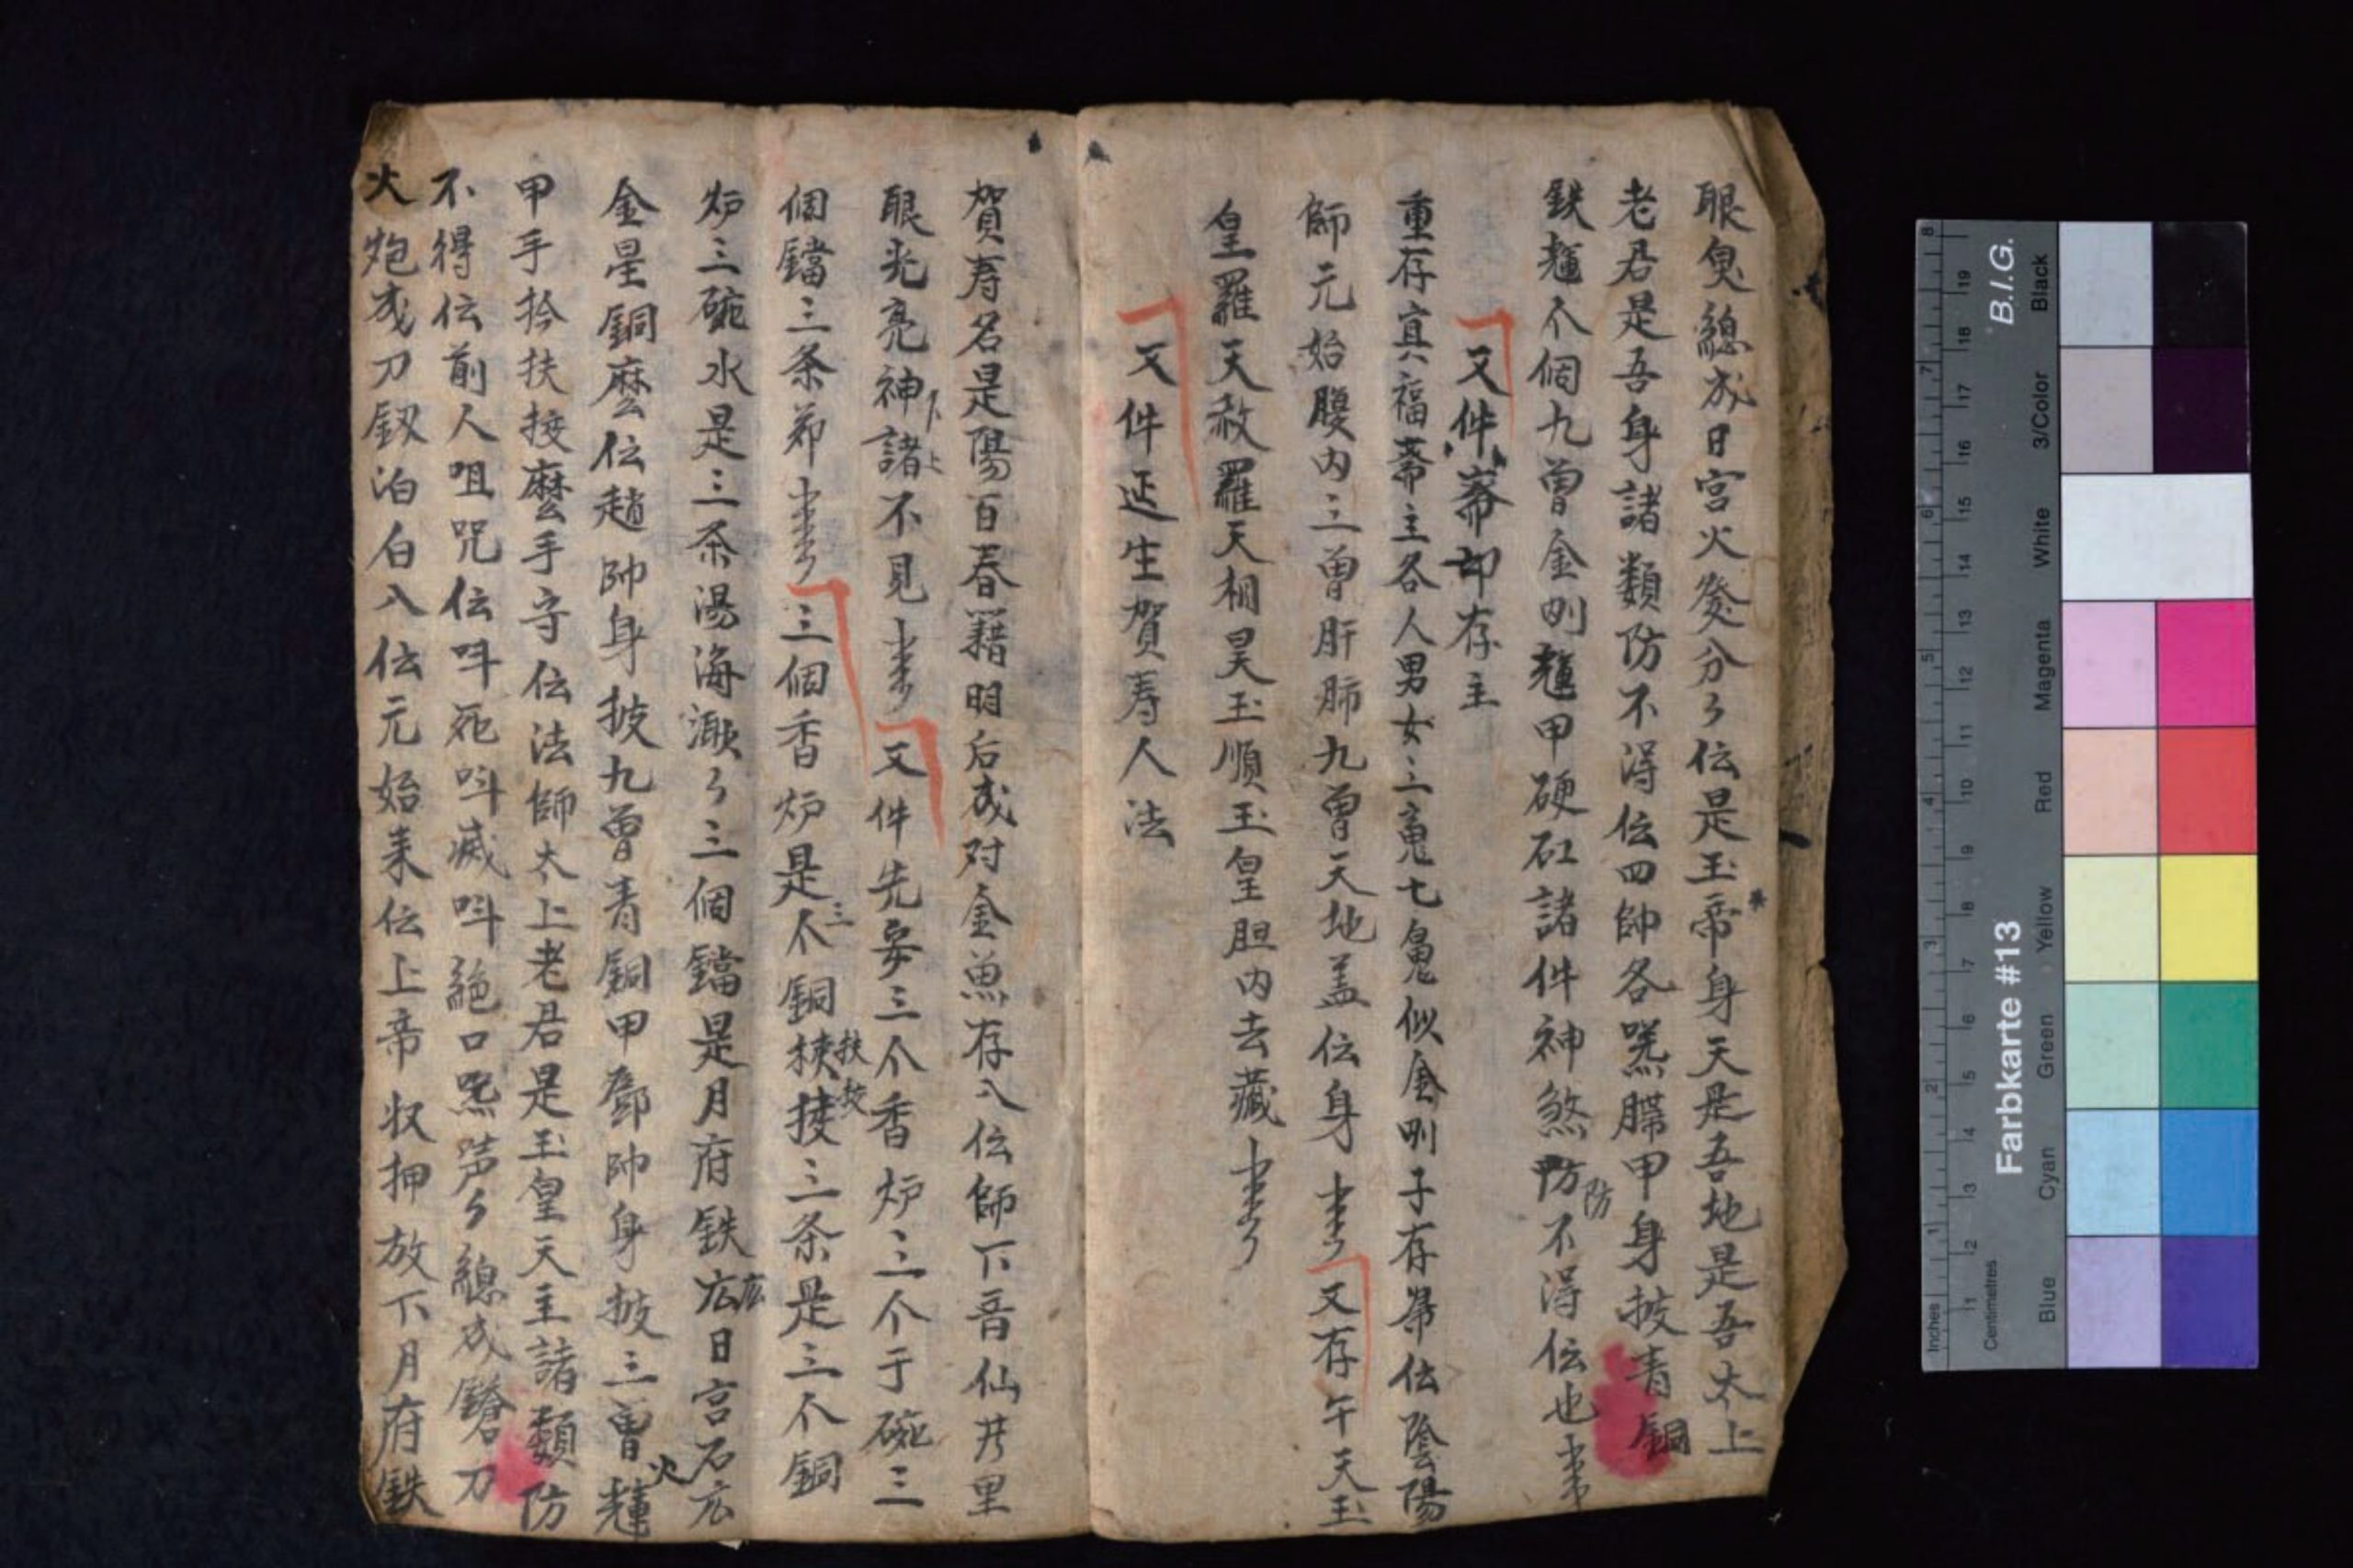 眼臭總成日宮火發分〻伝是玉帝身天是吾地是吾太上
老君是吾身諸類防不得伝四帥各 甲身披青銅
鉄 个個九曾金刚 甲硬 諸件神煞防不得伝也
防
又件 却存主
重存 福 主各人男女三魂七鬼似金刚子存 伝陰陽
師元始腹内三曾肝肺九曾天地盖伝身
又存午天玉
皇羅天赦羅天桐昊玉順玉皇胆内去藏
又件延生賀寿人法
賀寿名是陽百春籍明后成对金魚存入伝師下音仙共里
眼光亮神諸不見
下
上
又件先要三个香炉三个于碗三
個鐺三条
三個香炉是个銅 三条是三个銅
三
扶
炉三碗水是三条湯海 〻三個鐺是月府鉄広日宮石広
広
金星銅麽伝趙帥身披九曾青銅甲鄧帥身披三曾
火
甲手拎扶 麽手守伝法師太上老君是玉皇天主諸類防
不得伝前人咀咒伝呌死呌滅呌絕口 声〻總成鎗刀
火炮成刀釼泊白入伝元始来伝上帝収押放下月府鉄
B.I.G.
Farbkarte #13
Inches
Centimetres
Blue
Cyan
Green
Yellow
Red
Magenta
White
3/Color
Black